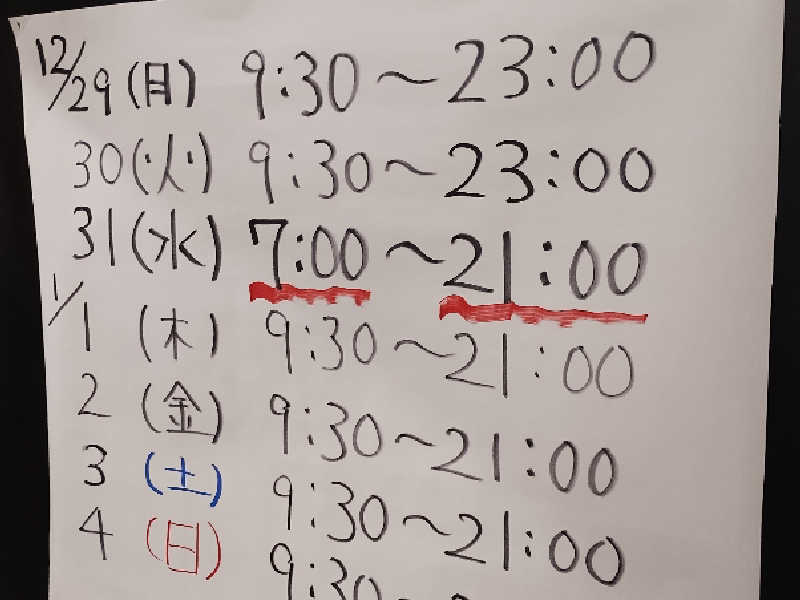 12/29 (月) 9:30～23:00
30 (火) 9:30～23:00
31 (水) 7:00～21:00
1/1 (木) 9:30～21:00
2 (金) 9:30～21:00
3 (土) 9:30～21:00
4 (日) 9:30